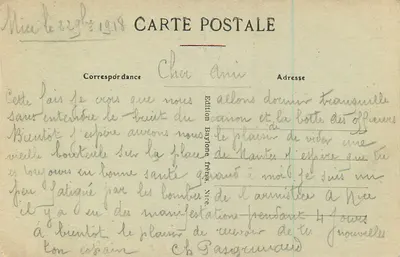 Nice le 22 9bre 1918
CARTE POSTALE
Correspondance
Adresse
Cher Ami
Cette fois je crois que nous allons dormir tranquille
sans entendre le bruit du canon et la botte des officiers
Bientôt j'espère aurons nous le plaisir de vider une
vieille bouteille sur la place de Nantes j'espère que tu
es toujours en bonne santé quand à moi je suis un
peu fatigué par les bombes de l'armistice à Nice
il y a eu des manifestations pendant 4 jours
à bientôt le plaisir de recevoir de tes nouvelles
ton copain Ch
Edition Baylone frères, Nice